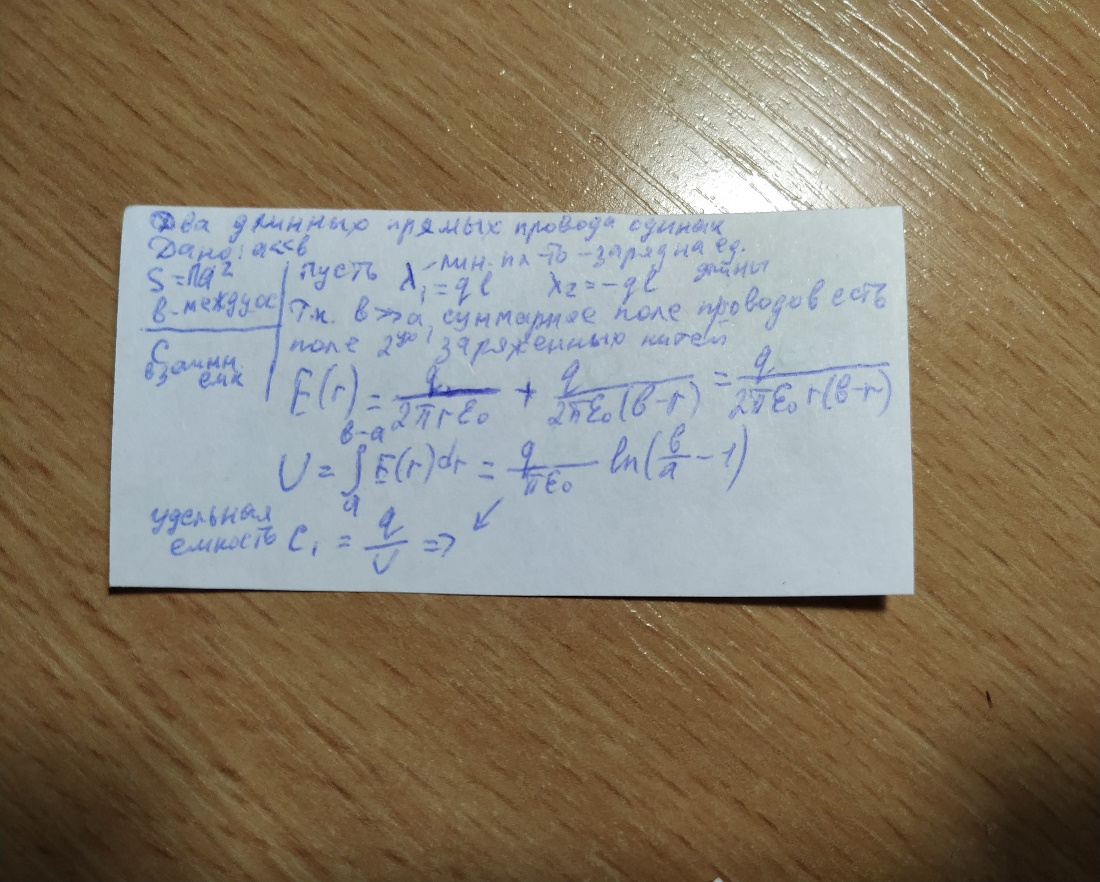 Два длинных прямых провода одинак
Дано: a<<b
S=Πa²
b-междуос
C взаимн. емк
Пусть λ₁=ql -лин. пл-ть -заряд на ед. длины λ₂=-ql
Т.к. b>>a, суммарное поле проводов есть
поле 2ух заряженных нитей
E(r) = q/(2πrε₀) + q/(2πε₀(b-r)) = q/(2πε₀ r(b-r))
U = ∫ₐᵇ⁻ᵃ E(r)dr = q/(πε₀) ln(b/a - 1)
удельная
емкость C₁ = q/U => ↙